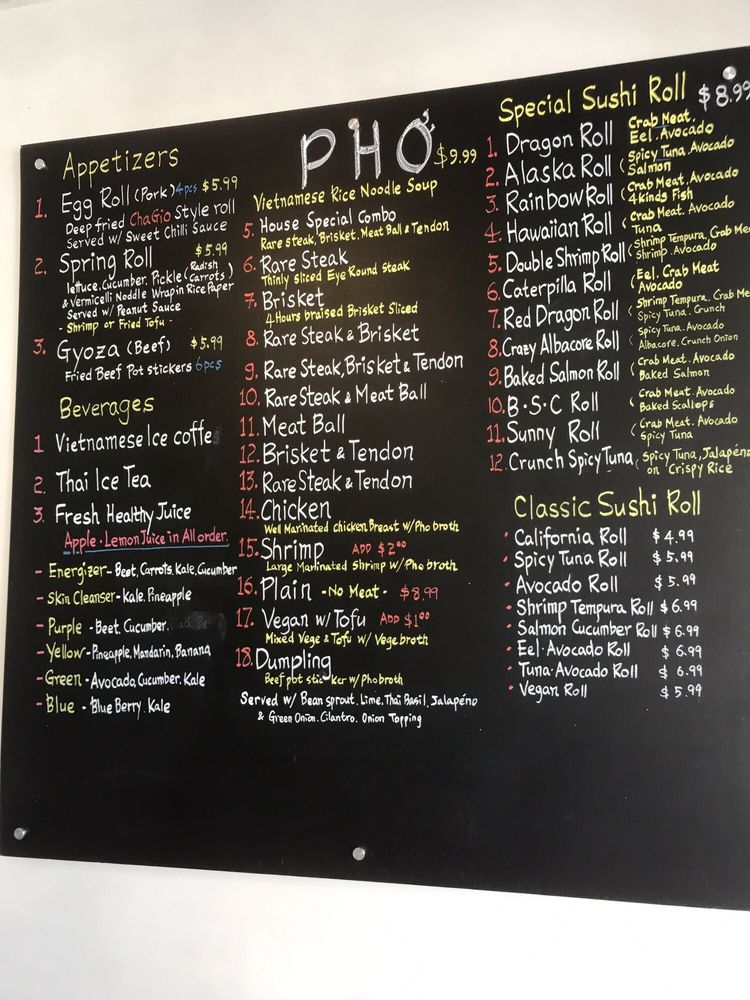 Appetizers
1. Egg Roll (Pork) 4pcs $5.99
Deep fried ChaGio Style roll
Served w/ Sweet Chilli Sauce
2. Spring Roll $5.99
lettuce. Cucumber. Pickle (Radish Carrots)
& Vermicelli Noddle Wrap in Rice Paper
Served w/ Peanut Sauce
- Shrimp or Fried Tofu -
3. Gyoza (Beef) $5.99
Fried Beef Pot stickers 6pcs
Beverages
1 Vietnamese Ice coffe
2. Thai Ice Tea
3. Fresh Healthy Juice
Apple. Lemon Juice in All order.
- Energizer - Beet, Carrots, Kale, Cucumber
- Skin Cleanser - Kale. Pineapple
- Purple - Beet. Cucumber.
- Yellow - Pineapple, Mandarin, Banana
- Green - Avocado, Cucumber. Kale
- Blue - Blue Berry. Kale
PHỞ $9.99
Vietnamese Rice Noodle Soup
5. House Special Combo
Rare steak, Brisket. Meat Ball & Tendon
6. Rare Steak
Thinly Sliced Eye Round Steak
7. Brisket
4 Hours braised Brisket Sliced
8. Rare Steak & Brisket
9. Rare Steak, Brisket & Tendon
10. Rare Steak & Meat Ball
11. Meat Ball
12. Brisket & Tendon
13. Rare Steak & Tendon
14. Chicken
Well Marinated chicken Breast w/ Pho broth
15. Shrimp ADD $2.00
Large Marinated Shrimp w/ Pho broth
16. Plain - No Meat - $8.99
17. Vegan w/ Tofu ADD $1.00
Mixed Vege & Tofu w/ Vege broth
18. Dumpling
Beef pot sticker w/ Pho broth
Served w/ Bean sprout. Lime. Thai Basil. Jalapéno
& Green Onion. Cilantro. Onion Topping
Special Sushi Roll $8.99
1. Dragon Roll Crab Meat. Eel. Avocado
2. Alaska Roll (Spicy Tuna. Avocado Salmon
3. Rainbow Roll (Crab Meat. Avocado 4 Kinds Fish
4. Hawaiian Roll (Crab Meat. Avocado Tuna
5. Double Shrimp Roll (Shrimp Tempura, Crab Me Shrimp. Avocado
6. Caterpilla Roll (Eel. Crab Meat Avocado
7. Red Dragon Roll (Shrimp Tempura. Crab Me Spicy Tuna. Crunch
8. Crazy Albacore Roll (Spicy Tuna. Avocado Albacore. Crunch Onion
9. Baked Salmon Roll (Crab Meat. Avocado Baked Salmon
10. B.S.C Roll (Crab Meat. Avocado Baked Scallops
11. Sunny Roll (Crab Meat. Avocado Spicy Tuna
12. Crunch Spicy Tuna (Spicy Tuna, Jalapéno on Crispy Rice
Classic Sushi Roll
• California Roll $4.99
• Spicy Tuna Roll $5.99
• Avocado Roll $5.99
• Shrimp Tempura Roll $6.99
• Salmon Cucumber Roll $6.99
• Eel. Avocado Roll $6.99
• Tuna. Avocado Roll $6.99
• Vegan Roll $5.99